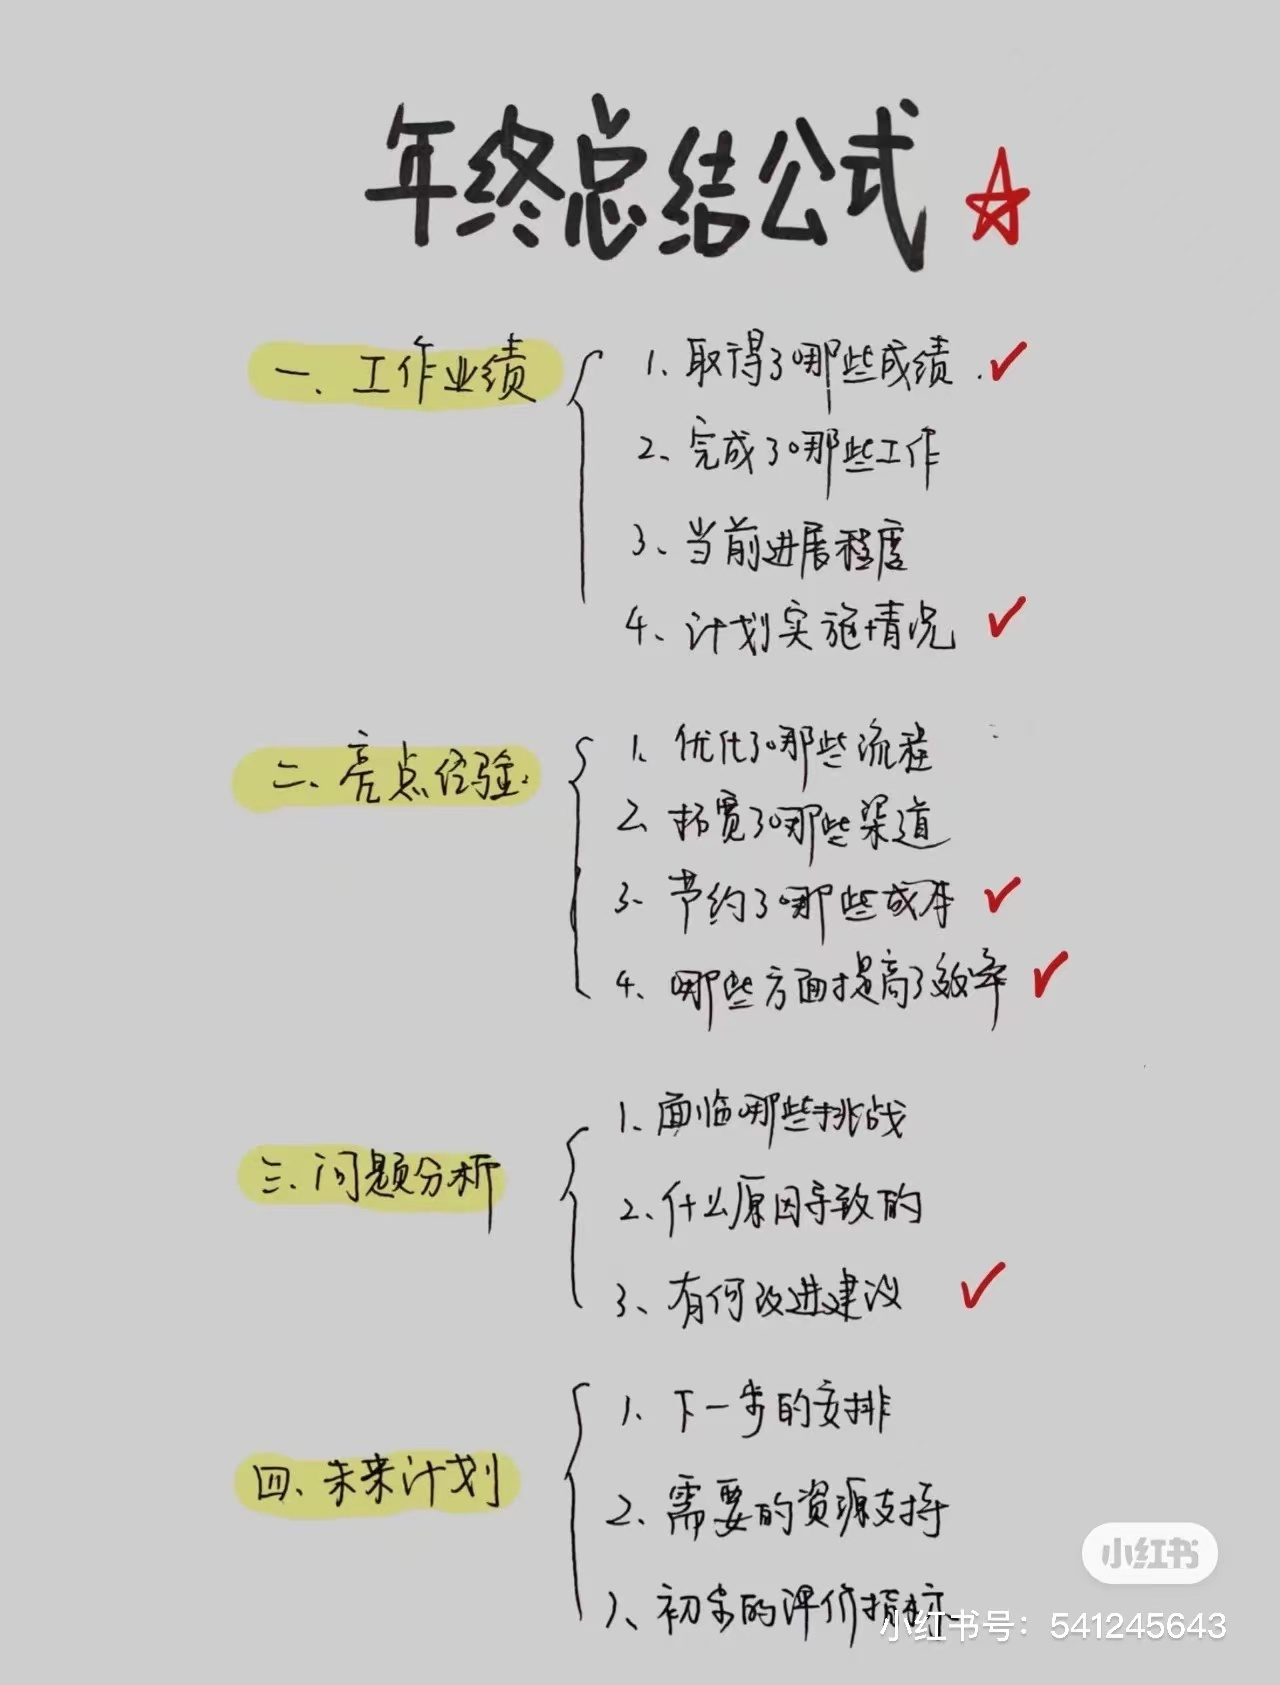 年终总结公式
一、工作业绩
1、取得了哪些成绩.
2、完成了哪些工作
3、当前进展程度
4、计划实施情况
二、亮点经验
1、优化了哪些流程
2、拓宽了哪些渠道
3、节约了哪些成本
4、哪些方面提高了效率
三、问题分析
1、面临哪些挑战
2、什么原因导致的
3、有何改进建议
四、未来计划
1、下一步的安排
2、需要的资源支持
3、初步的评价指标
小红书
小红书号：541245643